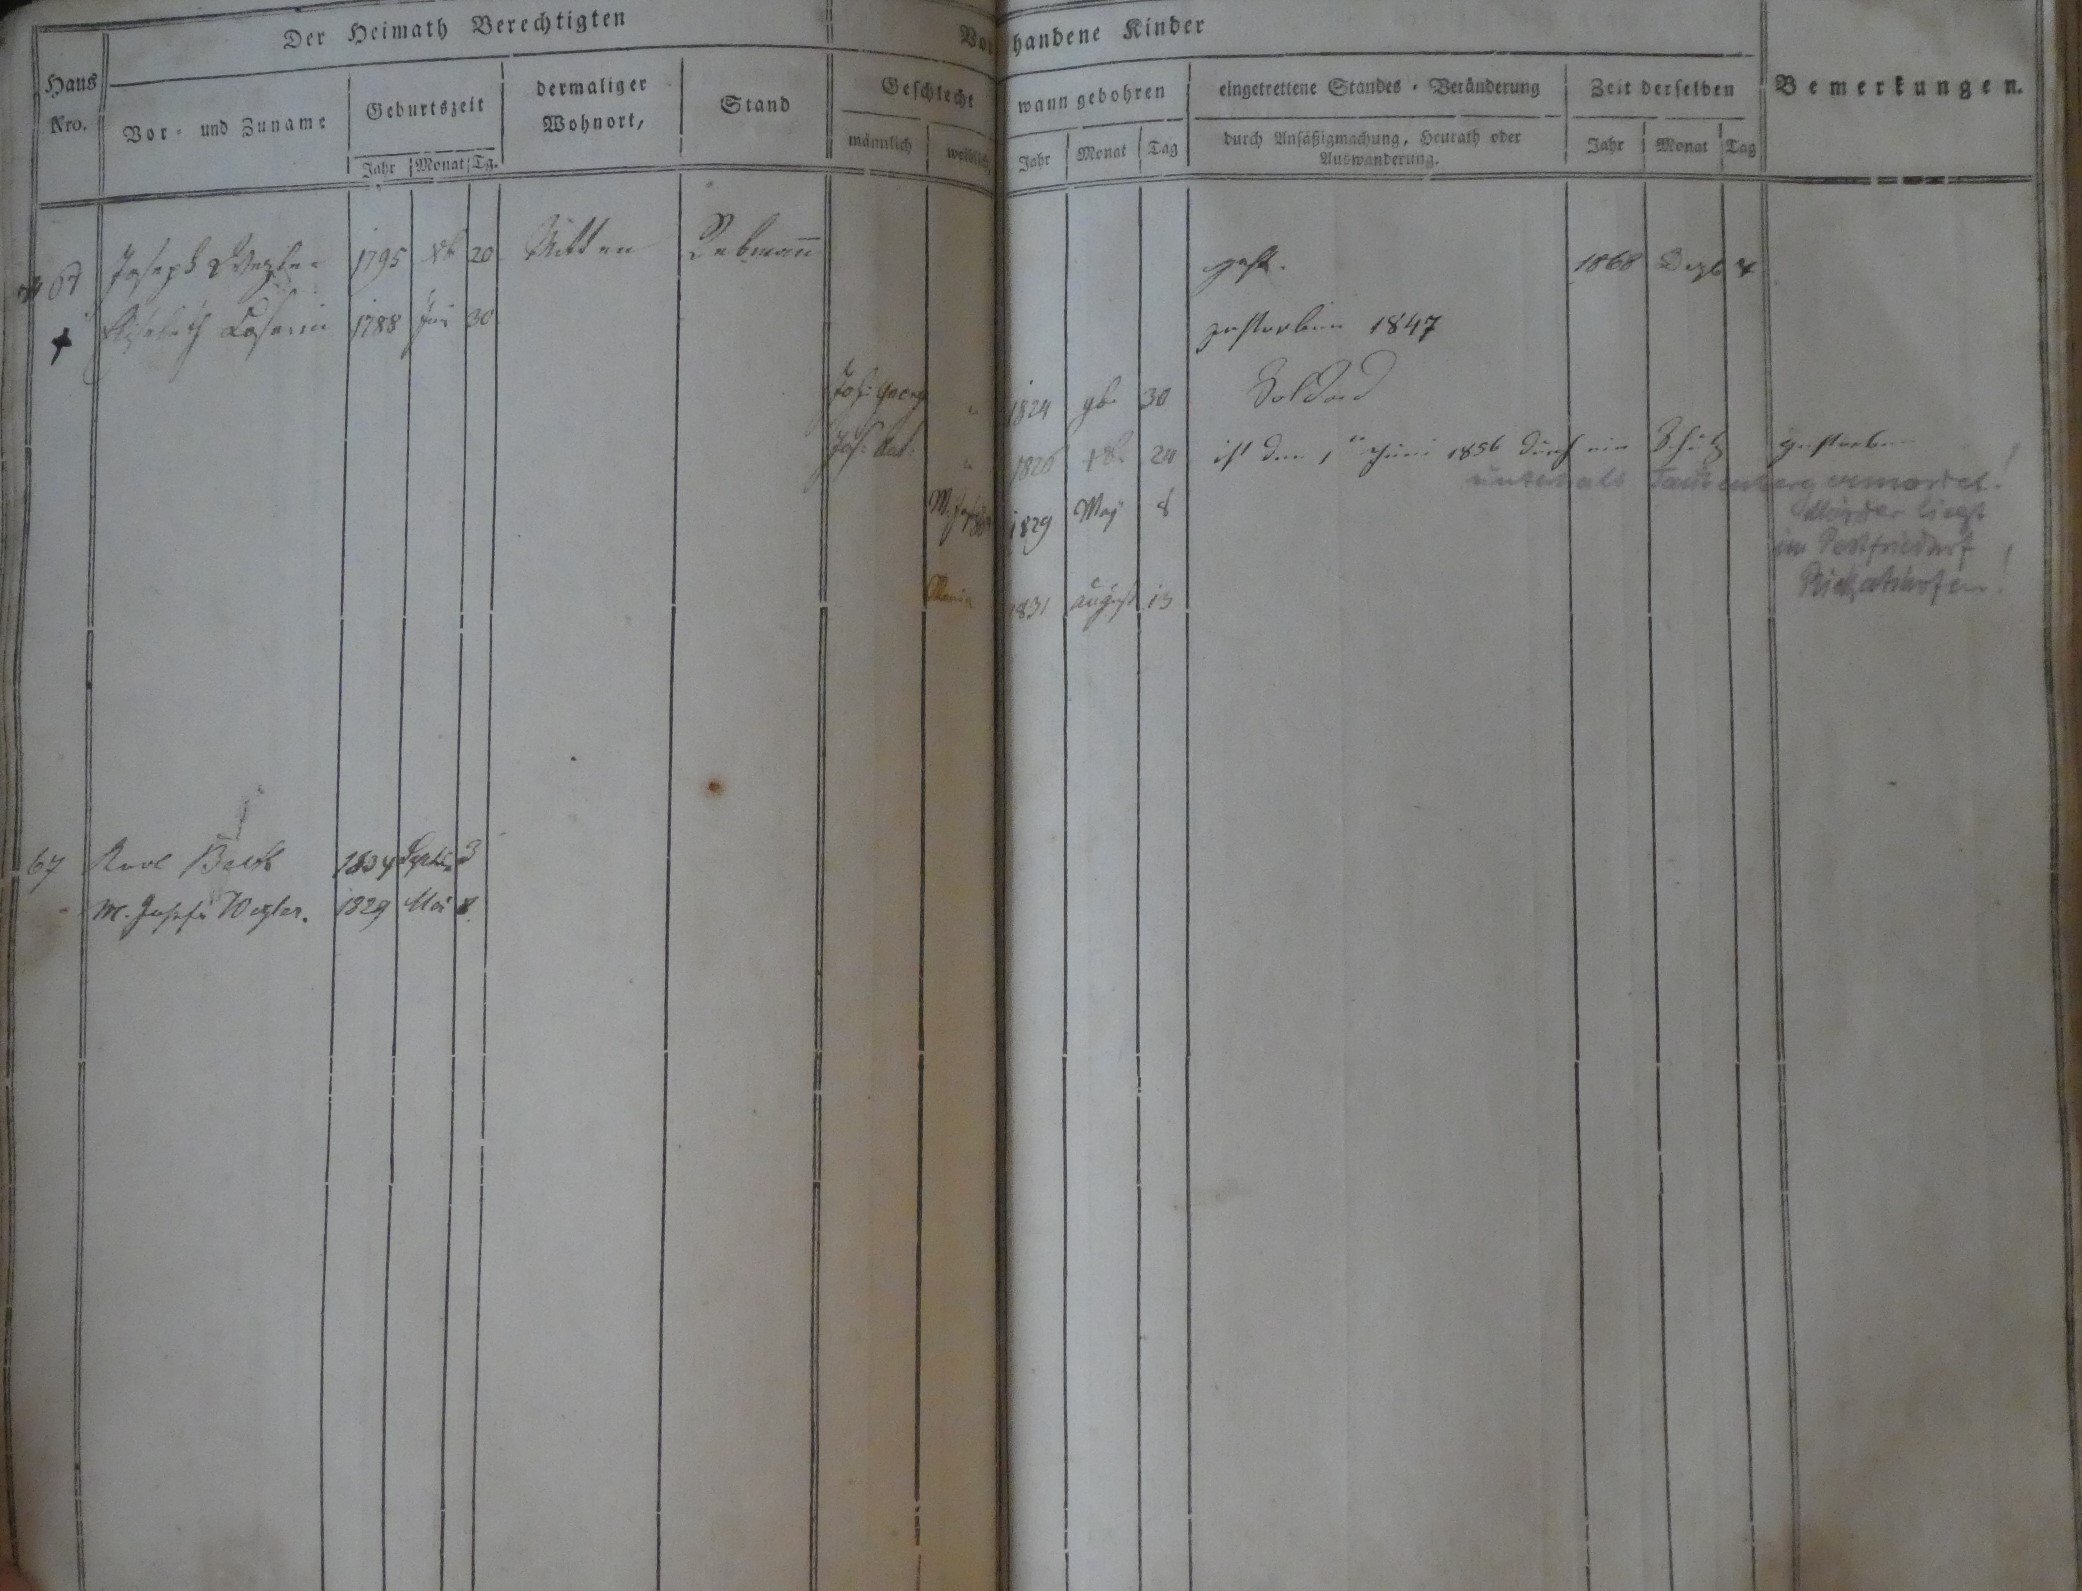 Der Heimath Berechtigten
Vorhandene Kinder
Haus Nro.
Vor- und Zuname
Geburtszeit
Jahr Monat Tg.
dermaliger Wohnort,
Stand
Geschlecht
männlich weiblich
wann gebohren
Jahr Monat Tag
eingetrettene Standes-Veränderung
durch Ansäßigmachung, Heurath oder
Auswanderung.
Zeit derselben
Jahr Monat Tag
Bemerkungen.
67 Joseph Wezler 1795 xb. 20 Mitten Rebmann gest. 1868 Dezb 4
+ Elisabeth 1788 Juni 30 gestorben 1847
Joh: Georg " 1824 9b. 30 Soldad
Jos: Ant: " 1826 xb. 24 ist den 1ten Juni 1856 durch ein Schuß gestorben
unterhalb ermordet!
Mörder liegt
im Pestfriedhof
M. Josepha 1829 May 8
Maria 1831 august 15
67 Karl 1834 Septb. 3
M. Josefa Wezler. 1829 Mai 8.